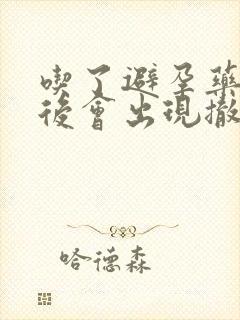 喫了避孕藥
後會出現撤
哈德森